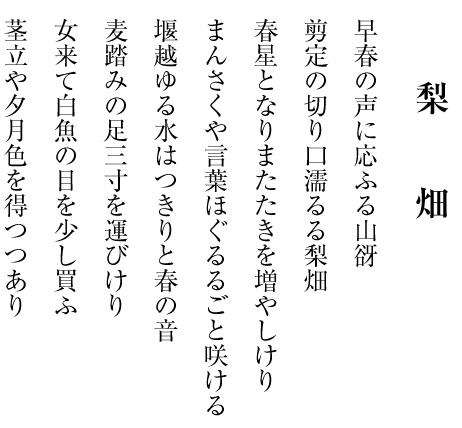 梨畑
早春の声に応ふる山谺
剪定の切り口濡るる梨畑
春星となりまたたきを増やしけり
まんさくや言葉ほぐるるごと咲ける
堰越ゆる水はつきりと春の音
麦踏みの足三寸を運びけり
女来て白魚の目を少し買ふ
茎立や夕月色を得つつあり